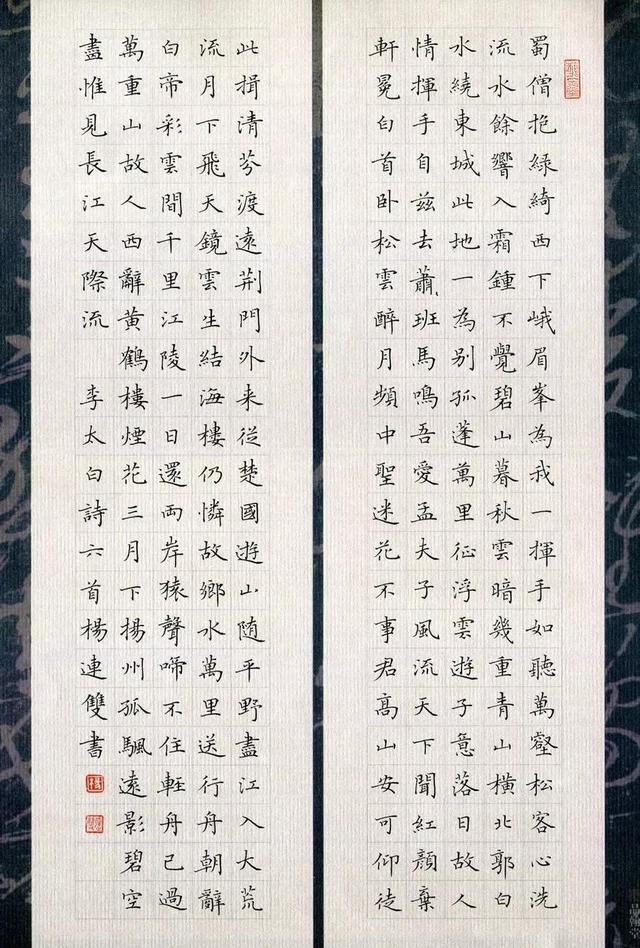 蜀僧抱綠綺西下峨眉峯為我一揮手如聽萬壑松客心洗
流水餘響入霜鍾不覺碧山暮秋雲暗幾重青山橫北郭白
水繞東城此地一為別孤蓬萬里征浮雲遊子意落日故人
情揮手自茲去蕭〻班馬鳴吾愛孟夫子風流天下聞紅顏棄
軒冕白首卧松雲醉月頻中聖迷花不事君高山安可仰徒
此揖清芬渡遠荊門外来從楚國遊山随平野盡江入大荒
流月下飛天鏡雲生結海樓仍憐故鄉水萬里送行舟朝辭
白帝彩雲間千里江陵一日還兩岸猿聲啼不住輕舟已過
萬重山故人西辭黃鶴樓煙花三月下揚州孤颿遠影碧空
盡惟見長江天際流 李太白詩六首楊連雙書